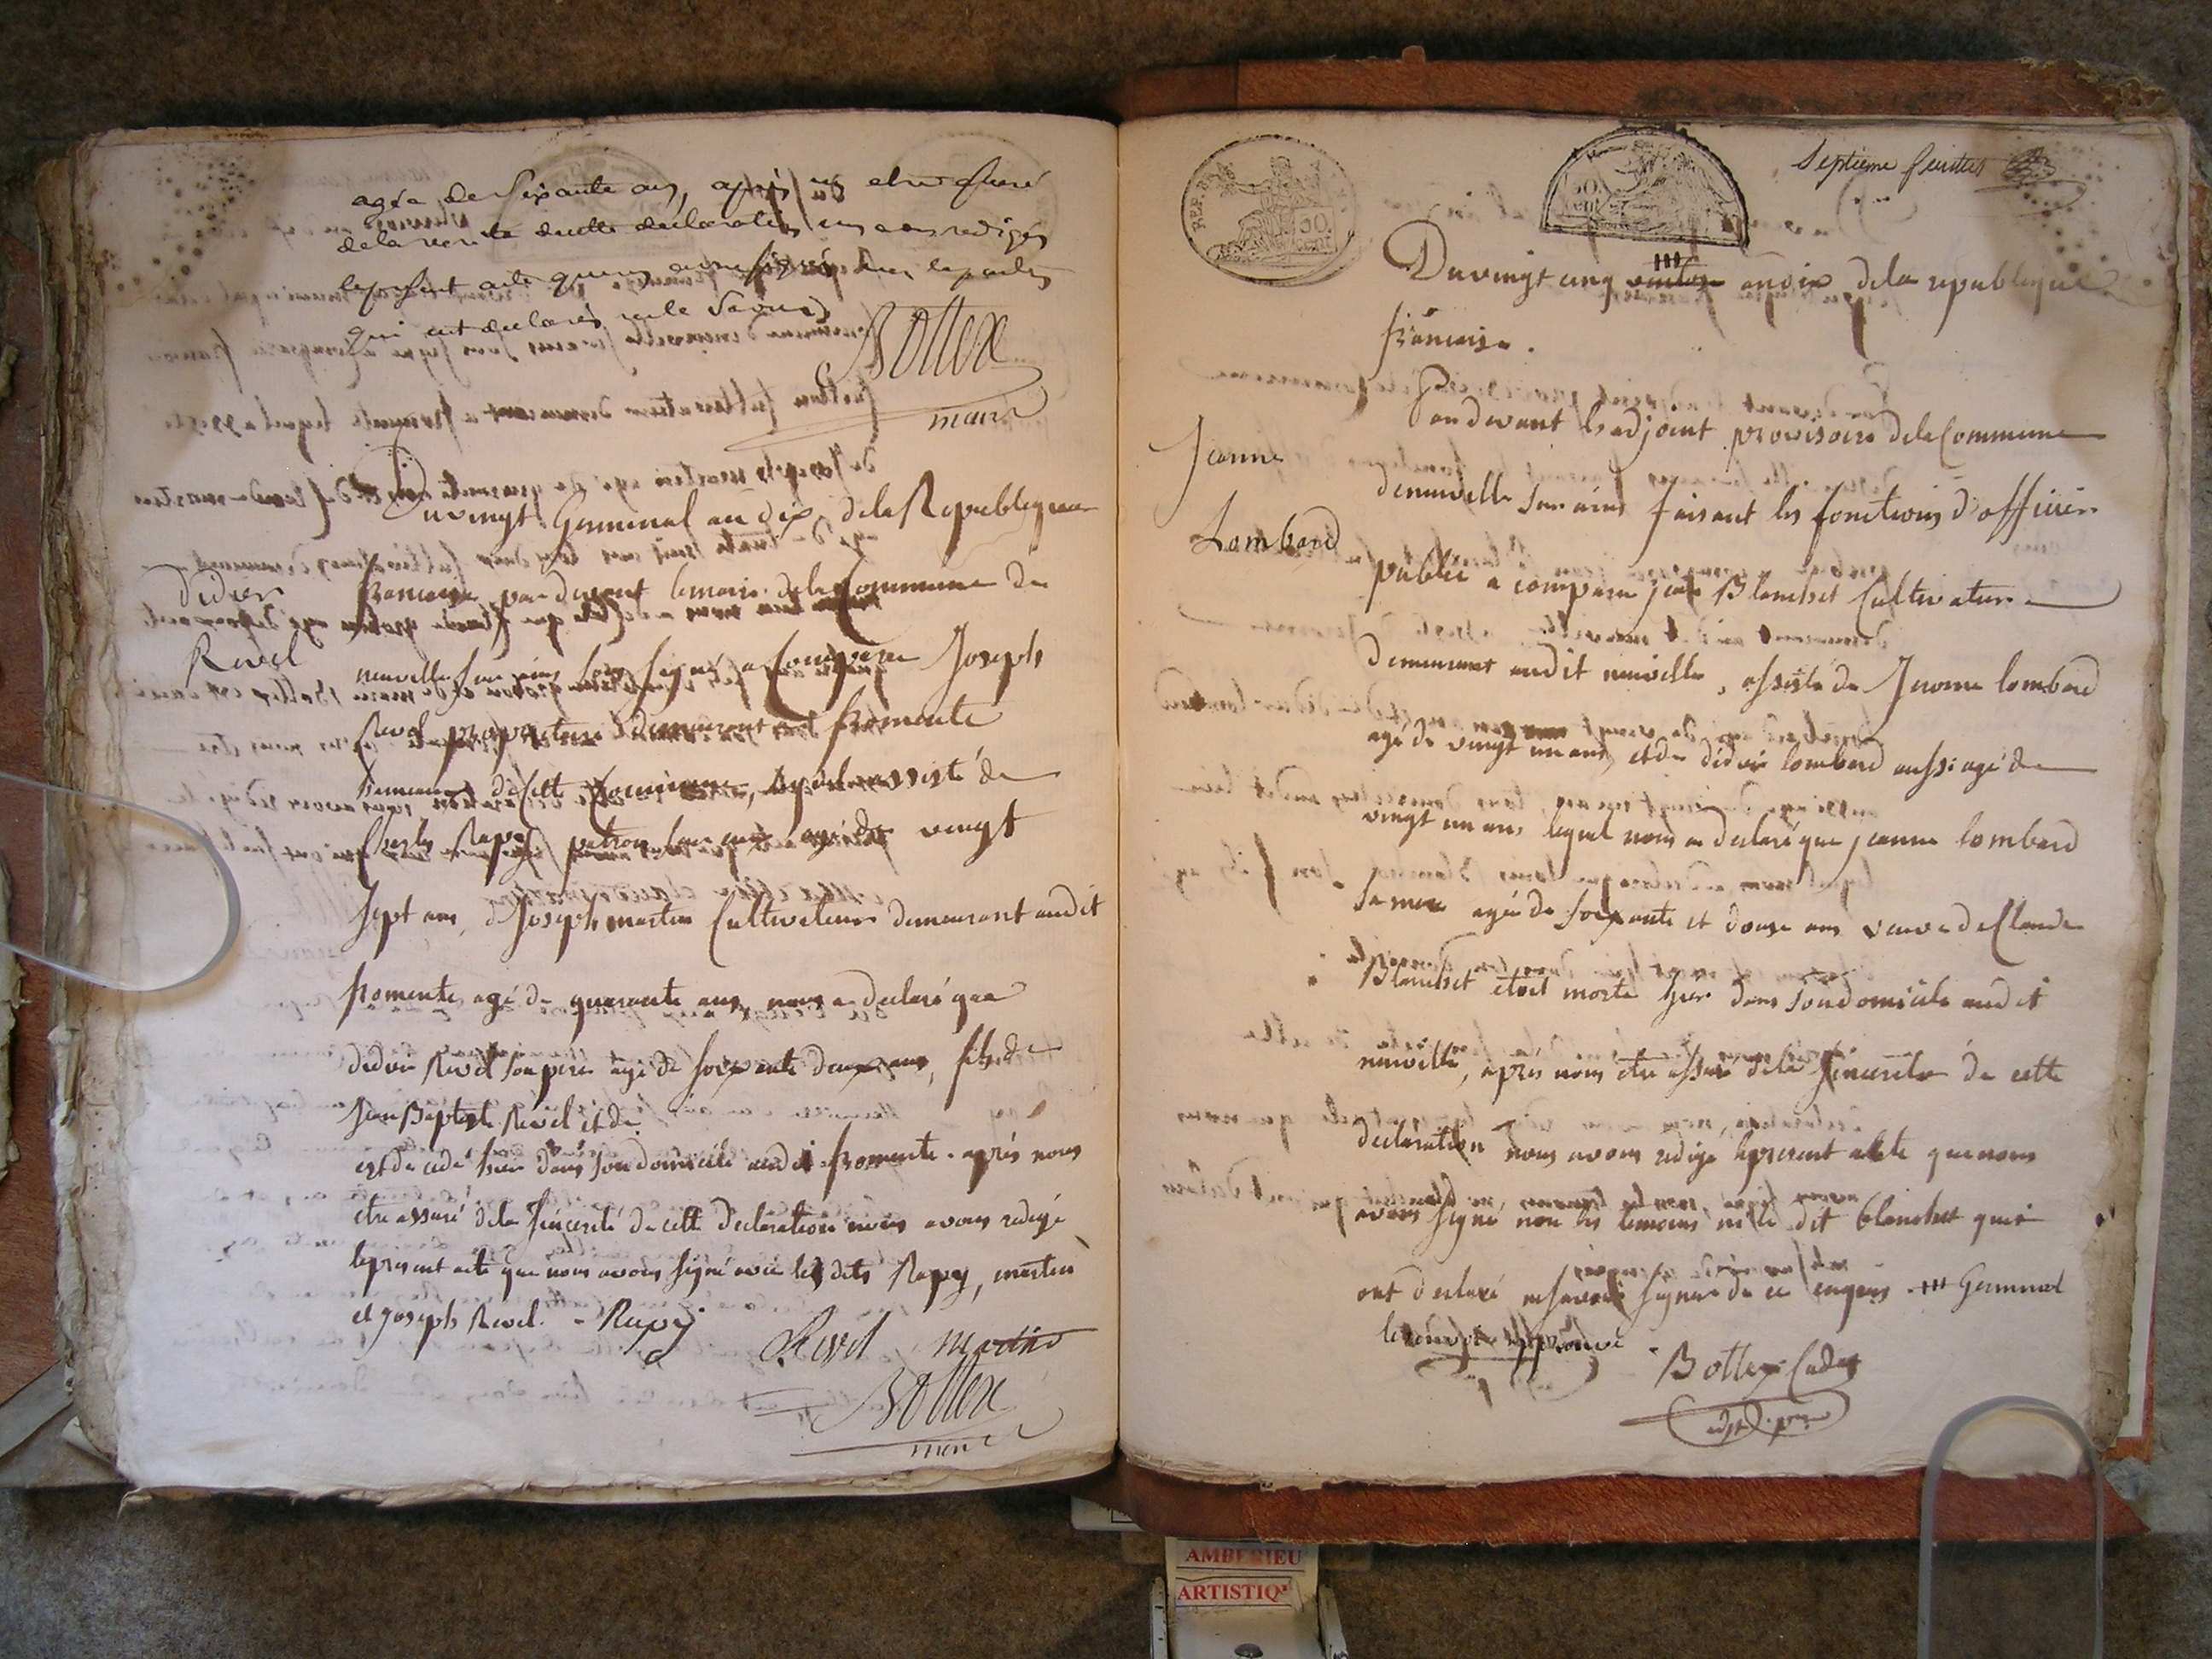 agée de Soixante ans, après nous etre assuré
de la verité de cette declaration nous avons redigé
le present acte que nous avons signé
qui ont declarés ne le Savoir
Bottex
maire
Du vingt Germinal an dix de la Republique
Didier
Revel
francaise, par devant le maire de la Commune de
neuville Sur ains Sous Signé a Comparu Joseph
Revel propriétaire demeurant a fromente
hameau de Cette Commune, lequel assisté de
Charles Rapy agé de vingt
Sept ans, & Joseph martin Cultivateur demeurant audit
fromente, agé de quarante ans, nous a declaré que
didier Revel Son père agé de Soixante deux ans, fils de
Jean Baptiste Revel et de
est decedé hier dans Son domicile audit fromente. après nous
etre assuré de la Sincerité de cette declaration nous avons redigé
le present acte que nous avons Signé avec les dits Rapy, martin
et Joseph Revel. - Rapy
Revel martin
Bottex
maire
Septieme feuillet
REP. FRA.
50 cent
50 cent
Du vingt cinq ventose an dix de la republique
francaise.
Par devant l'adjoint provisoire de la Commune
Jeanne
Lombard
de neuville Sur ains faisant les fonctions d'officier
public a comparu Blanchet Cultivateur
demeurant audit neuville, assisté de Jerome lombard
agé de vingt un ans, et de didier lombard aussi agé de
vingt un ans lequel nous a declaré que jeanne lombard
Sa mere agée de Soixante et douze ans veuve de Claude
Blanchet etoit morte hier dans Son domicile audit
neuville, après nous etre assuré de la Sincerité de cette
declaration nous avons redigé le present acte que nous
avons Signé non les temoins ni le dit blanchet qui
ont declaré ne Savoir Signer de ce enquis. Germinal
le renvoi approuvé
Bottex Cadet
adjt prov
AMBERIEU
ARTISTIQ